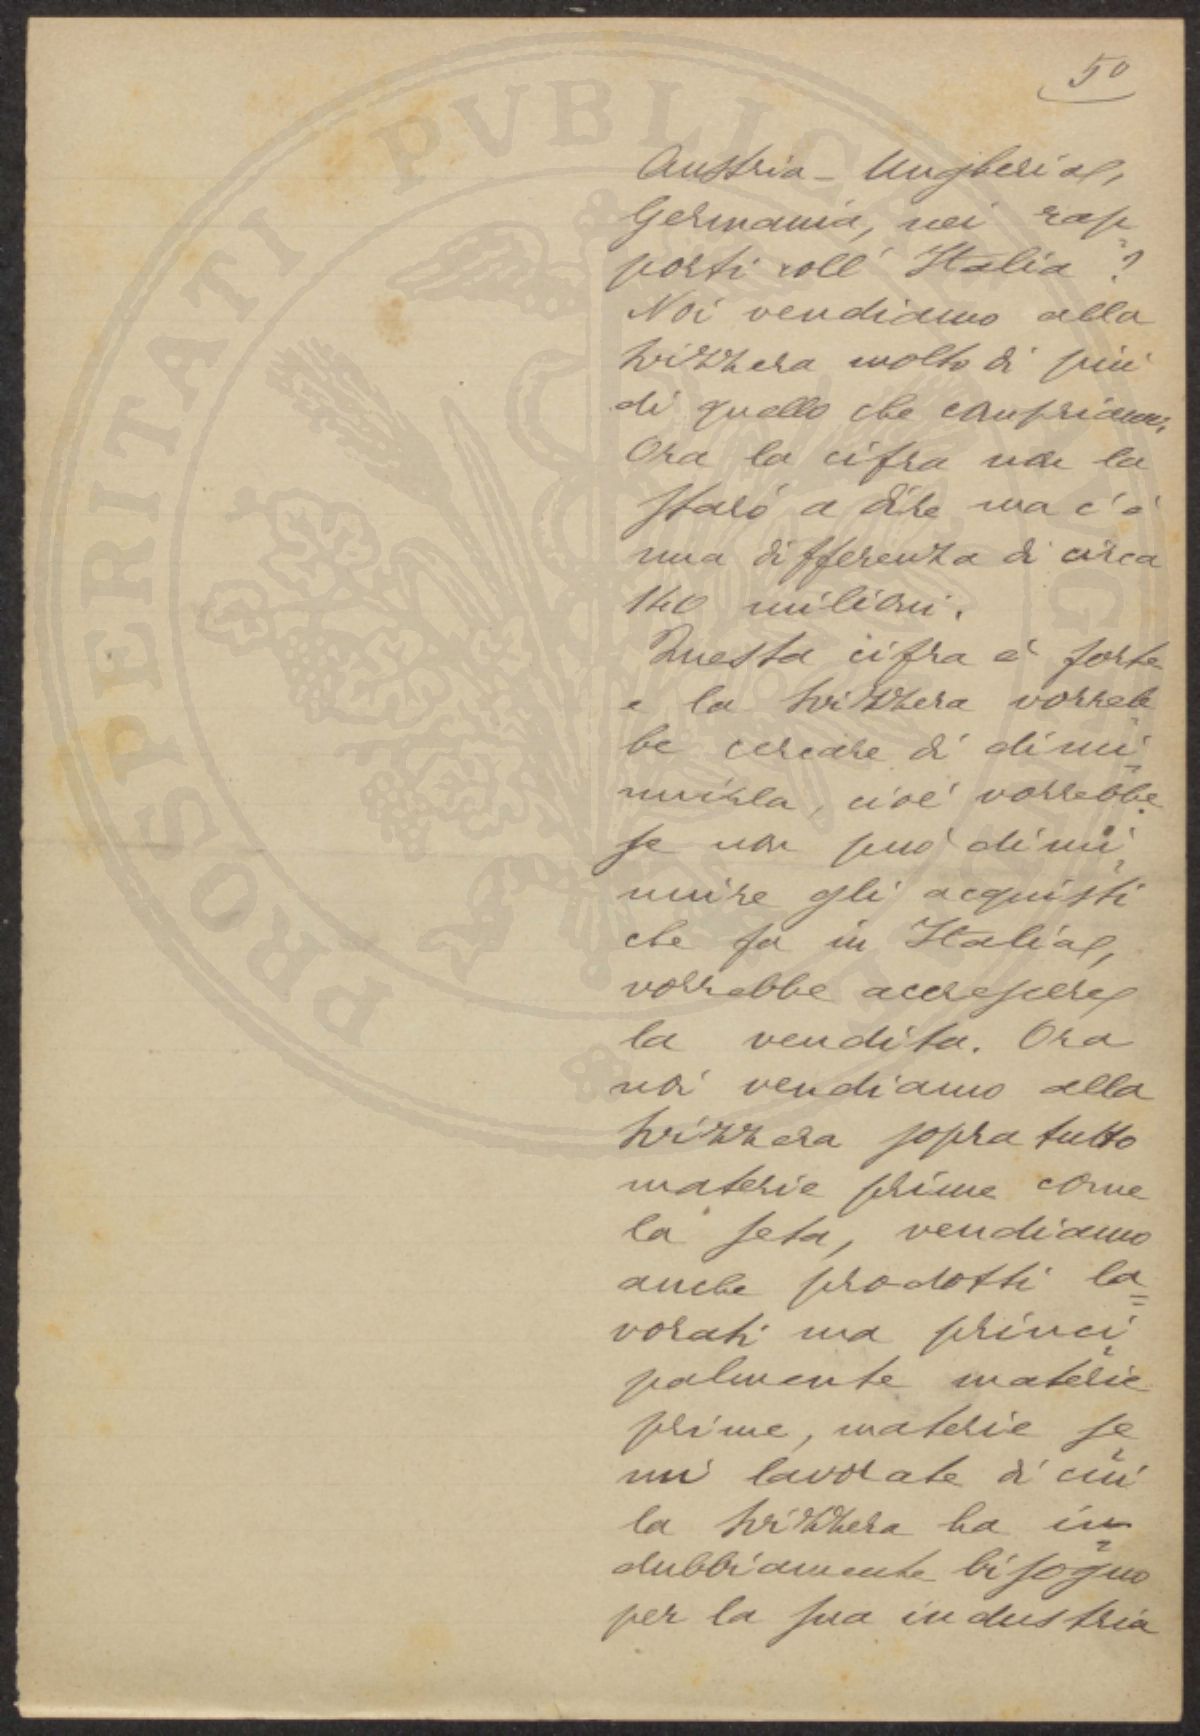 50
Austria - Ungheria,
Germania, nei rap
porti coll' Italia?
Noi vendiamo alla
Svizzera molto di più
di quello che compriamo.
Ora la cifra non la
starò a dire ma c'è
una differenza di circa
140 milioni.
Questa cifra è forte
e la Svizzera vorreb
be cercare di dimi
nuirla, cioè vorrebbe
se non può dimi
nuire gli acquisti
che fa in Italia,
vorrebbe accrescere
la vendita. Ora
noi vendiamo alla
Svizzera sopra tutto
materie prime come
la seta, vendiamo
anche prodotti la=
vorati ma princi
palmente materie
prime, materie se
mi lavorate di cui
la Svizzera ha in
dubbiamente bisogno
per la sua industria
PROSPERITATI PVBLICAE